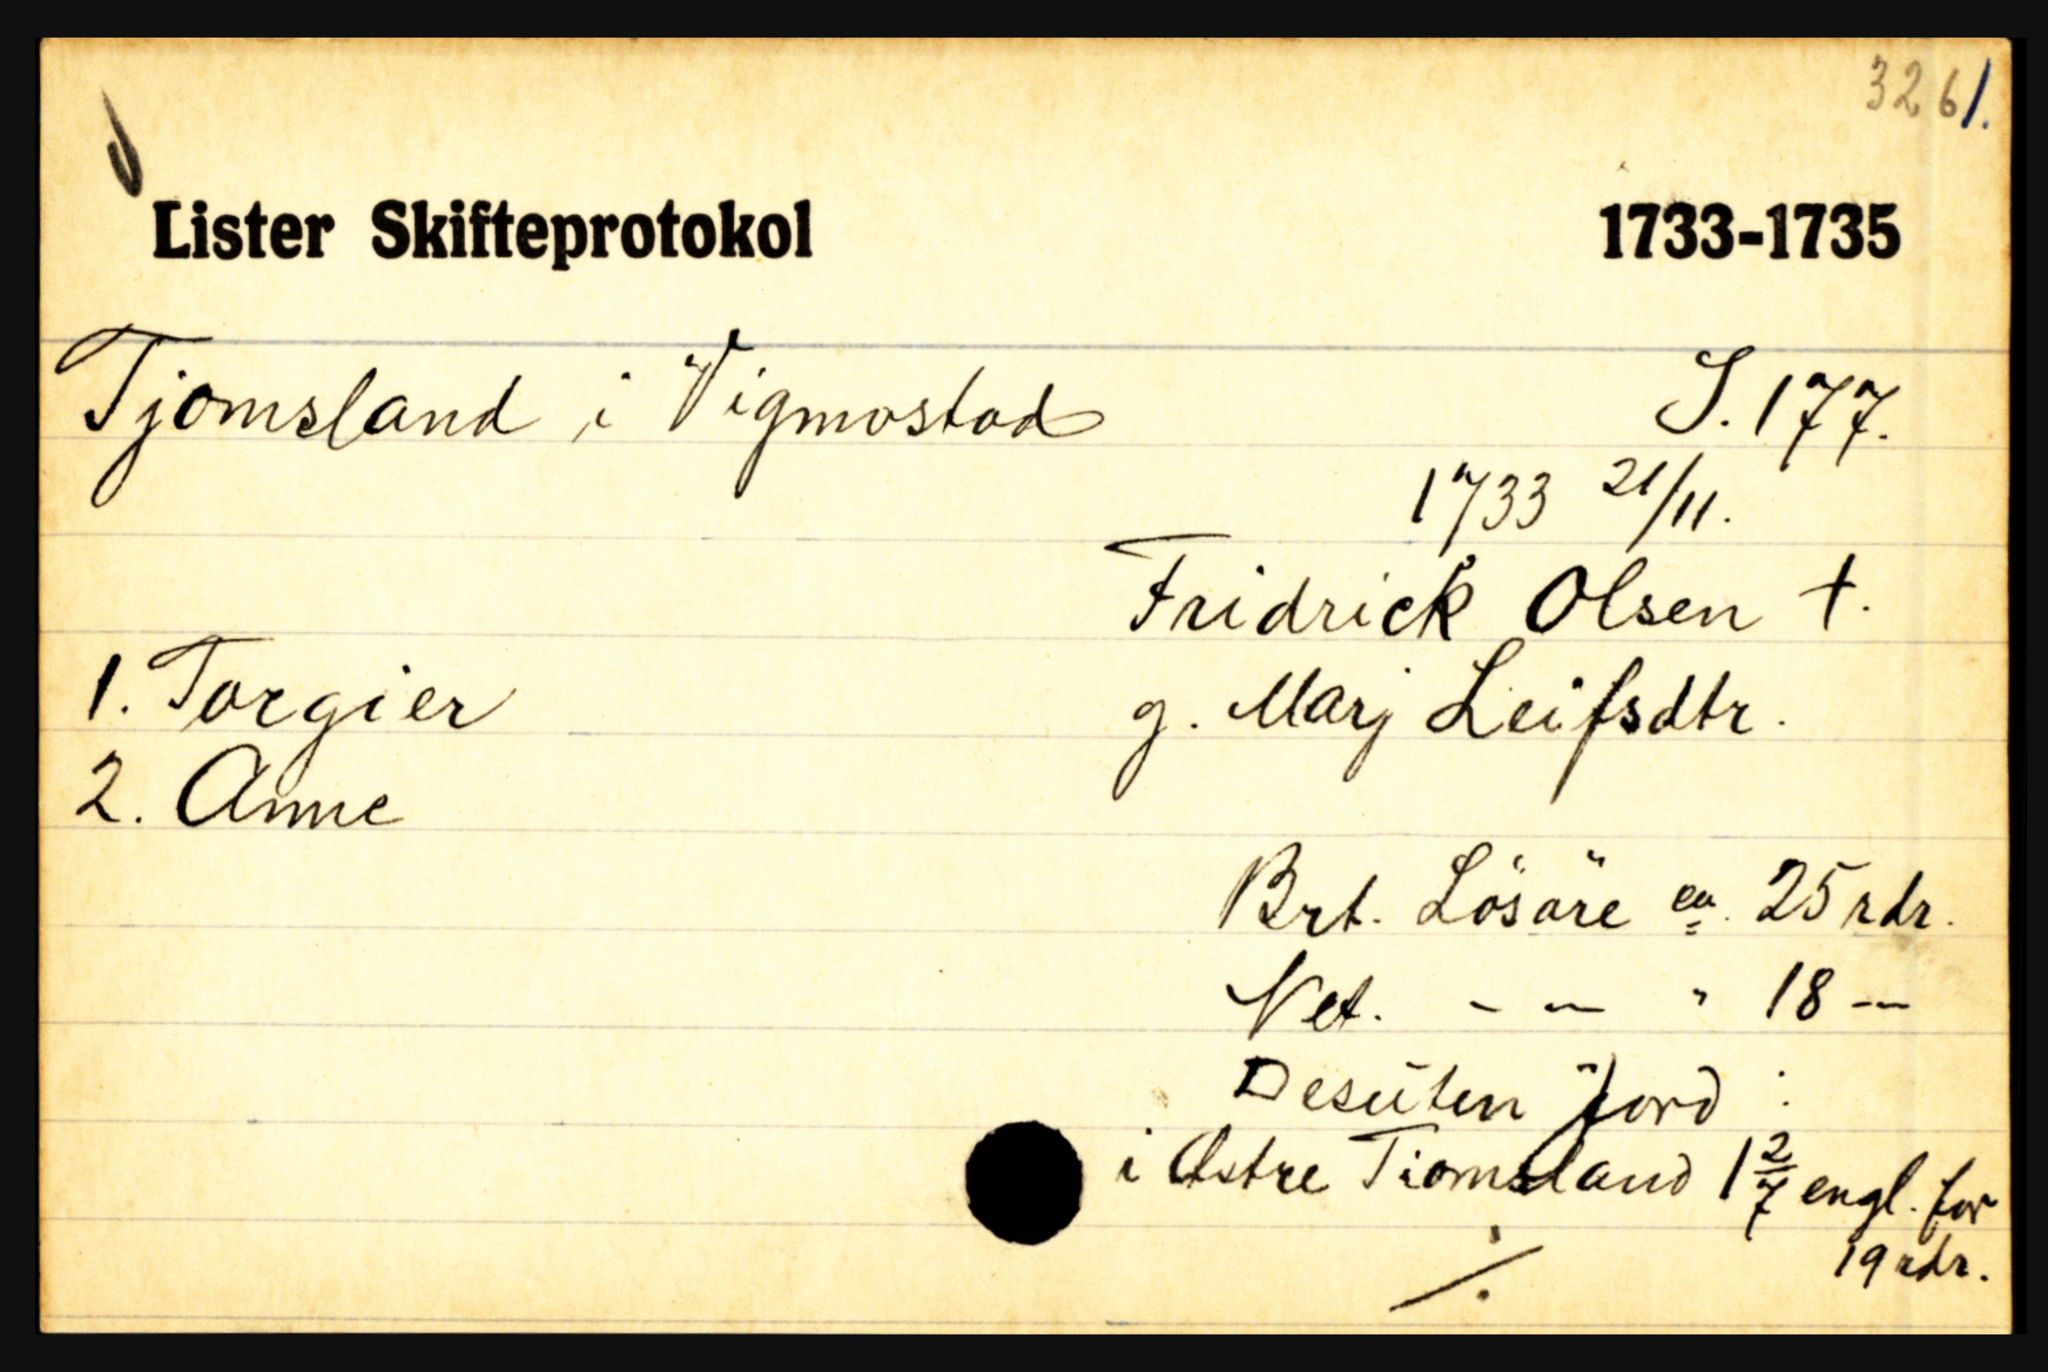 3261.
Lister Skifteprotokol 1733-1735
Tjomsland i Vigmostad S. 177.
1733 21/11.
Fridrick Olsen †.
1. Torgier g. Marj Leifsdtr.
2. Anne
Brt. Lösöre ca. 25 rdr.
Net. - — " 18 —
Desuten jord :
i Østre Tiomsland 1 2/7 engl. for
19 rdr.
./.